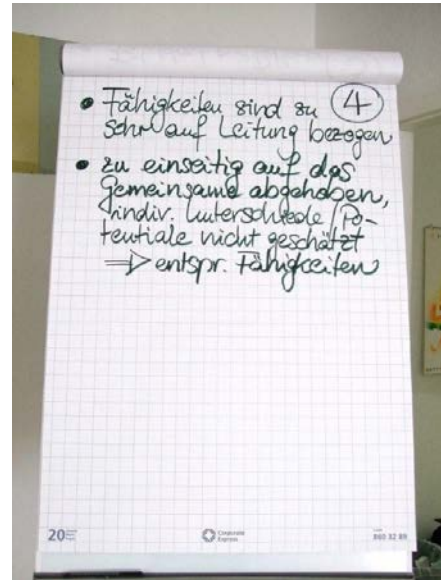 • Fähigkeiten sind zu ④
sehr auf Leitung bezogen
• zu einseitig auf das
Gemeinsame abgehoben,
indiv. Unterschiede / Po-
tentiale nicht geschätzt
⇒ entspr. Fähigkeiten
20
Corporate
Express
860 32 89